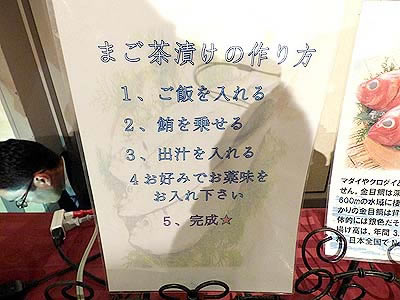 まご茶漬けの作り方
1、ご飯を入れる
2、鮪を乗せる
3、出汁を入れる
4お好みでお薬味を
お入れ下さい
5、完成☆
マダイやクロダイ
せん。金目鯛は深
600mの水域に棲
かりの金目鯛は
体的には銀色だそ
揚げ高は、年間 3.
、日本全国で